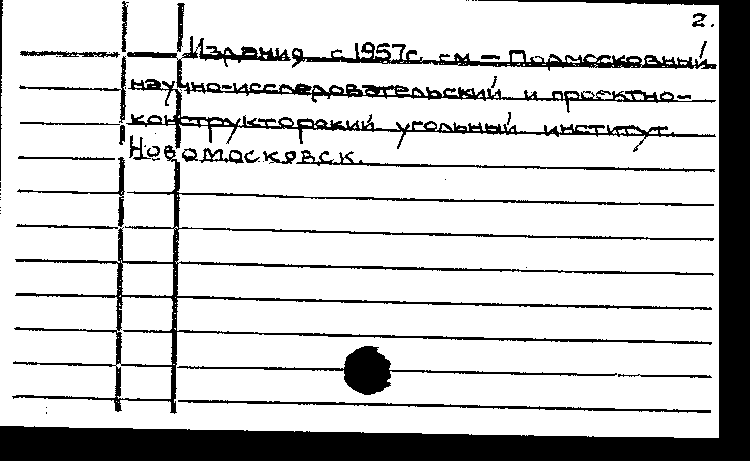 2.
Издания с 1957г. см – Подмосковный
научно-исследовательский и проектно-
конструкторский угольный институт.
Новомосковск.